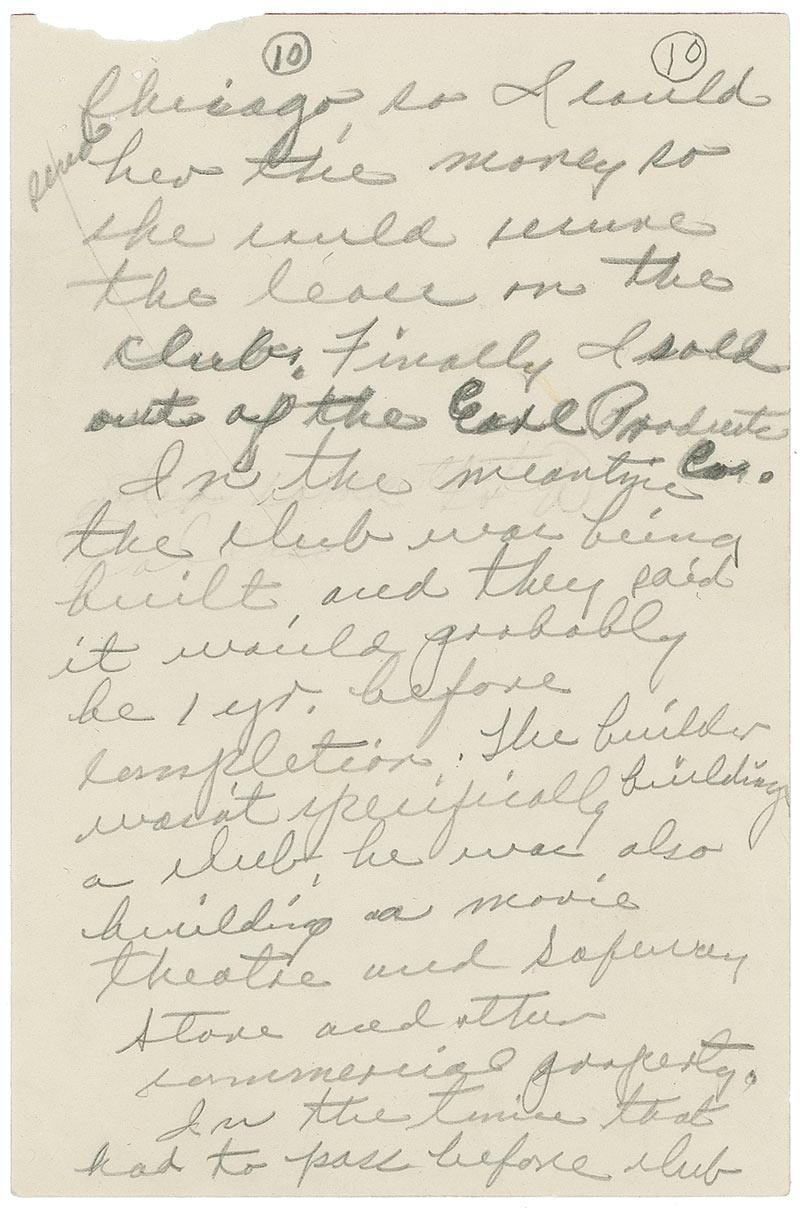 10 10
Chicago, so I could
send her the money so
she could secure
the lease on the
club. Finally I sold
out of the Earl Products
Co.
In the meantime
the club was being
built, and they said
it would probably
be 1 yr. before
completion. The builder
wasn't specifically building
a club, he was also
building a movie
theatre and Safeway
Store and other
commercial property.
In the time that
had to pass before club